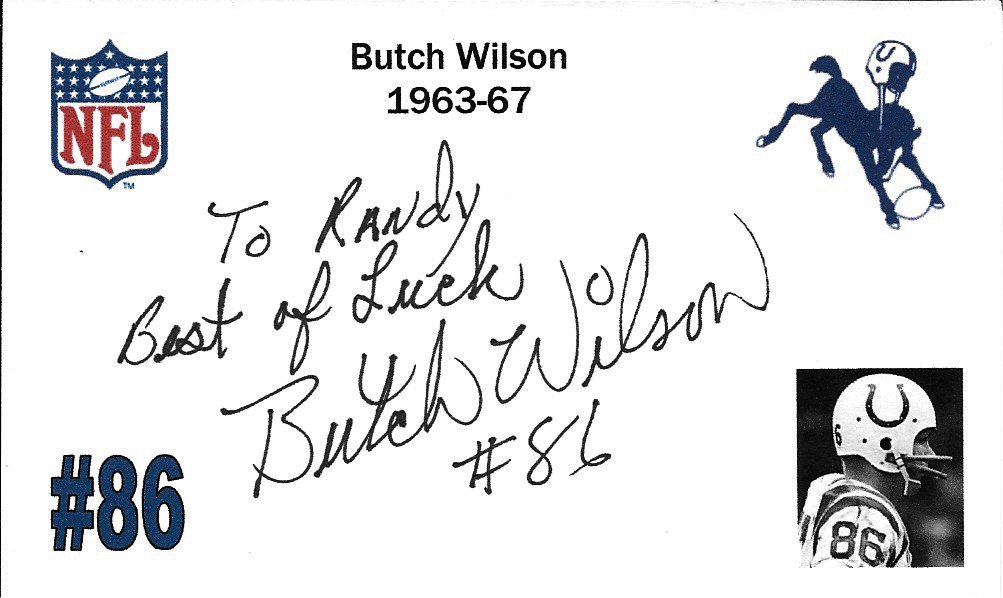 Butch Wilson
1963-67
NFL
TM
To Randy
Best of Luck
Butch Wilson
#86
#86
86
6